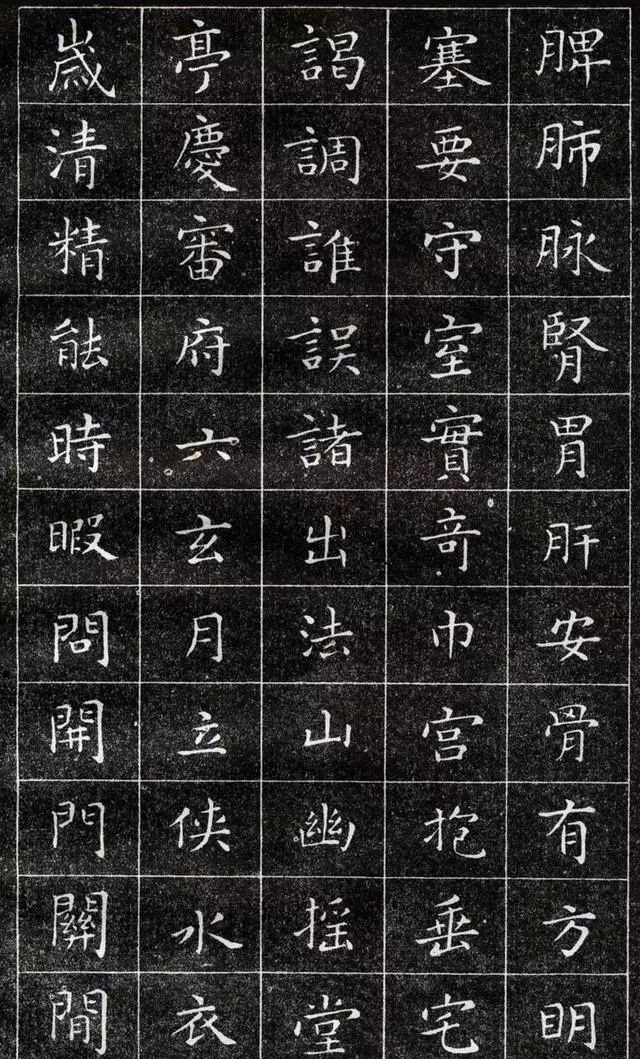 脾肺脉腎胃肝安骨有方明
塞要守室實奇巾宫抱垂宅
謁調誰誤諸出法山幽摇堂
亭慶審府六玄月立侠水衣
歲清精能時暇問開門關閒